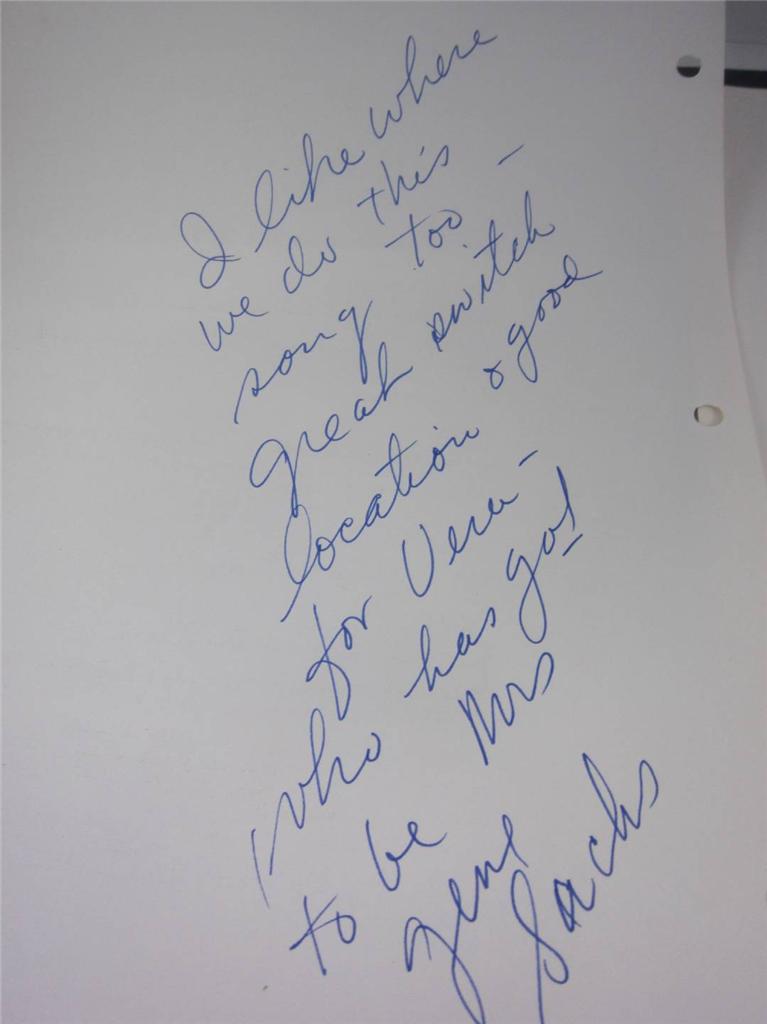 I like where
we do this
song too -
great switch
location & good
for Vera -
who has got
to be Mrs
Gene
Sachs